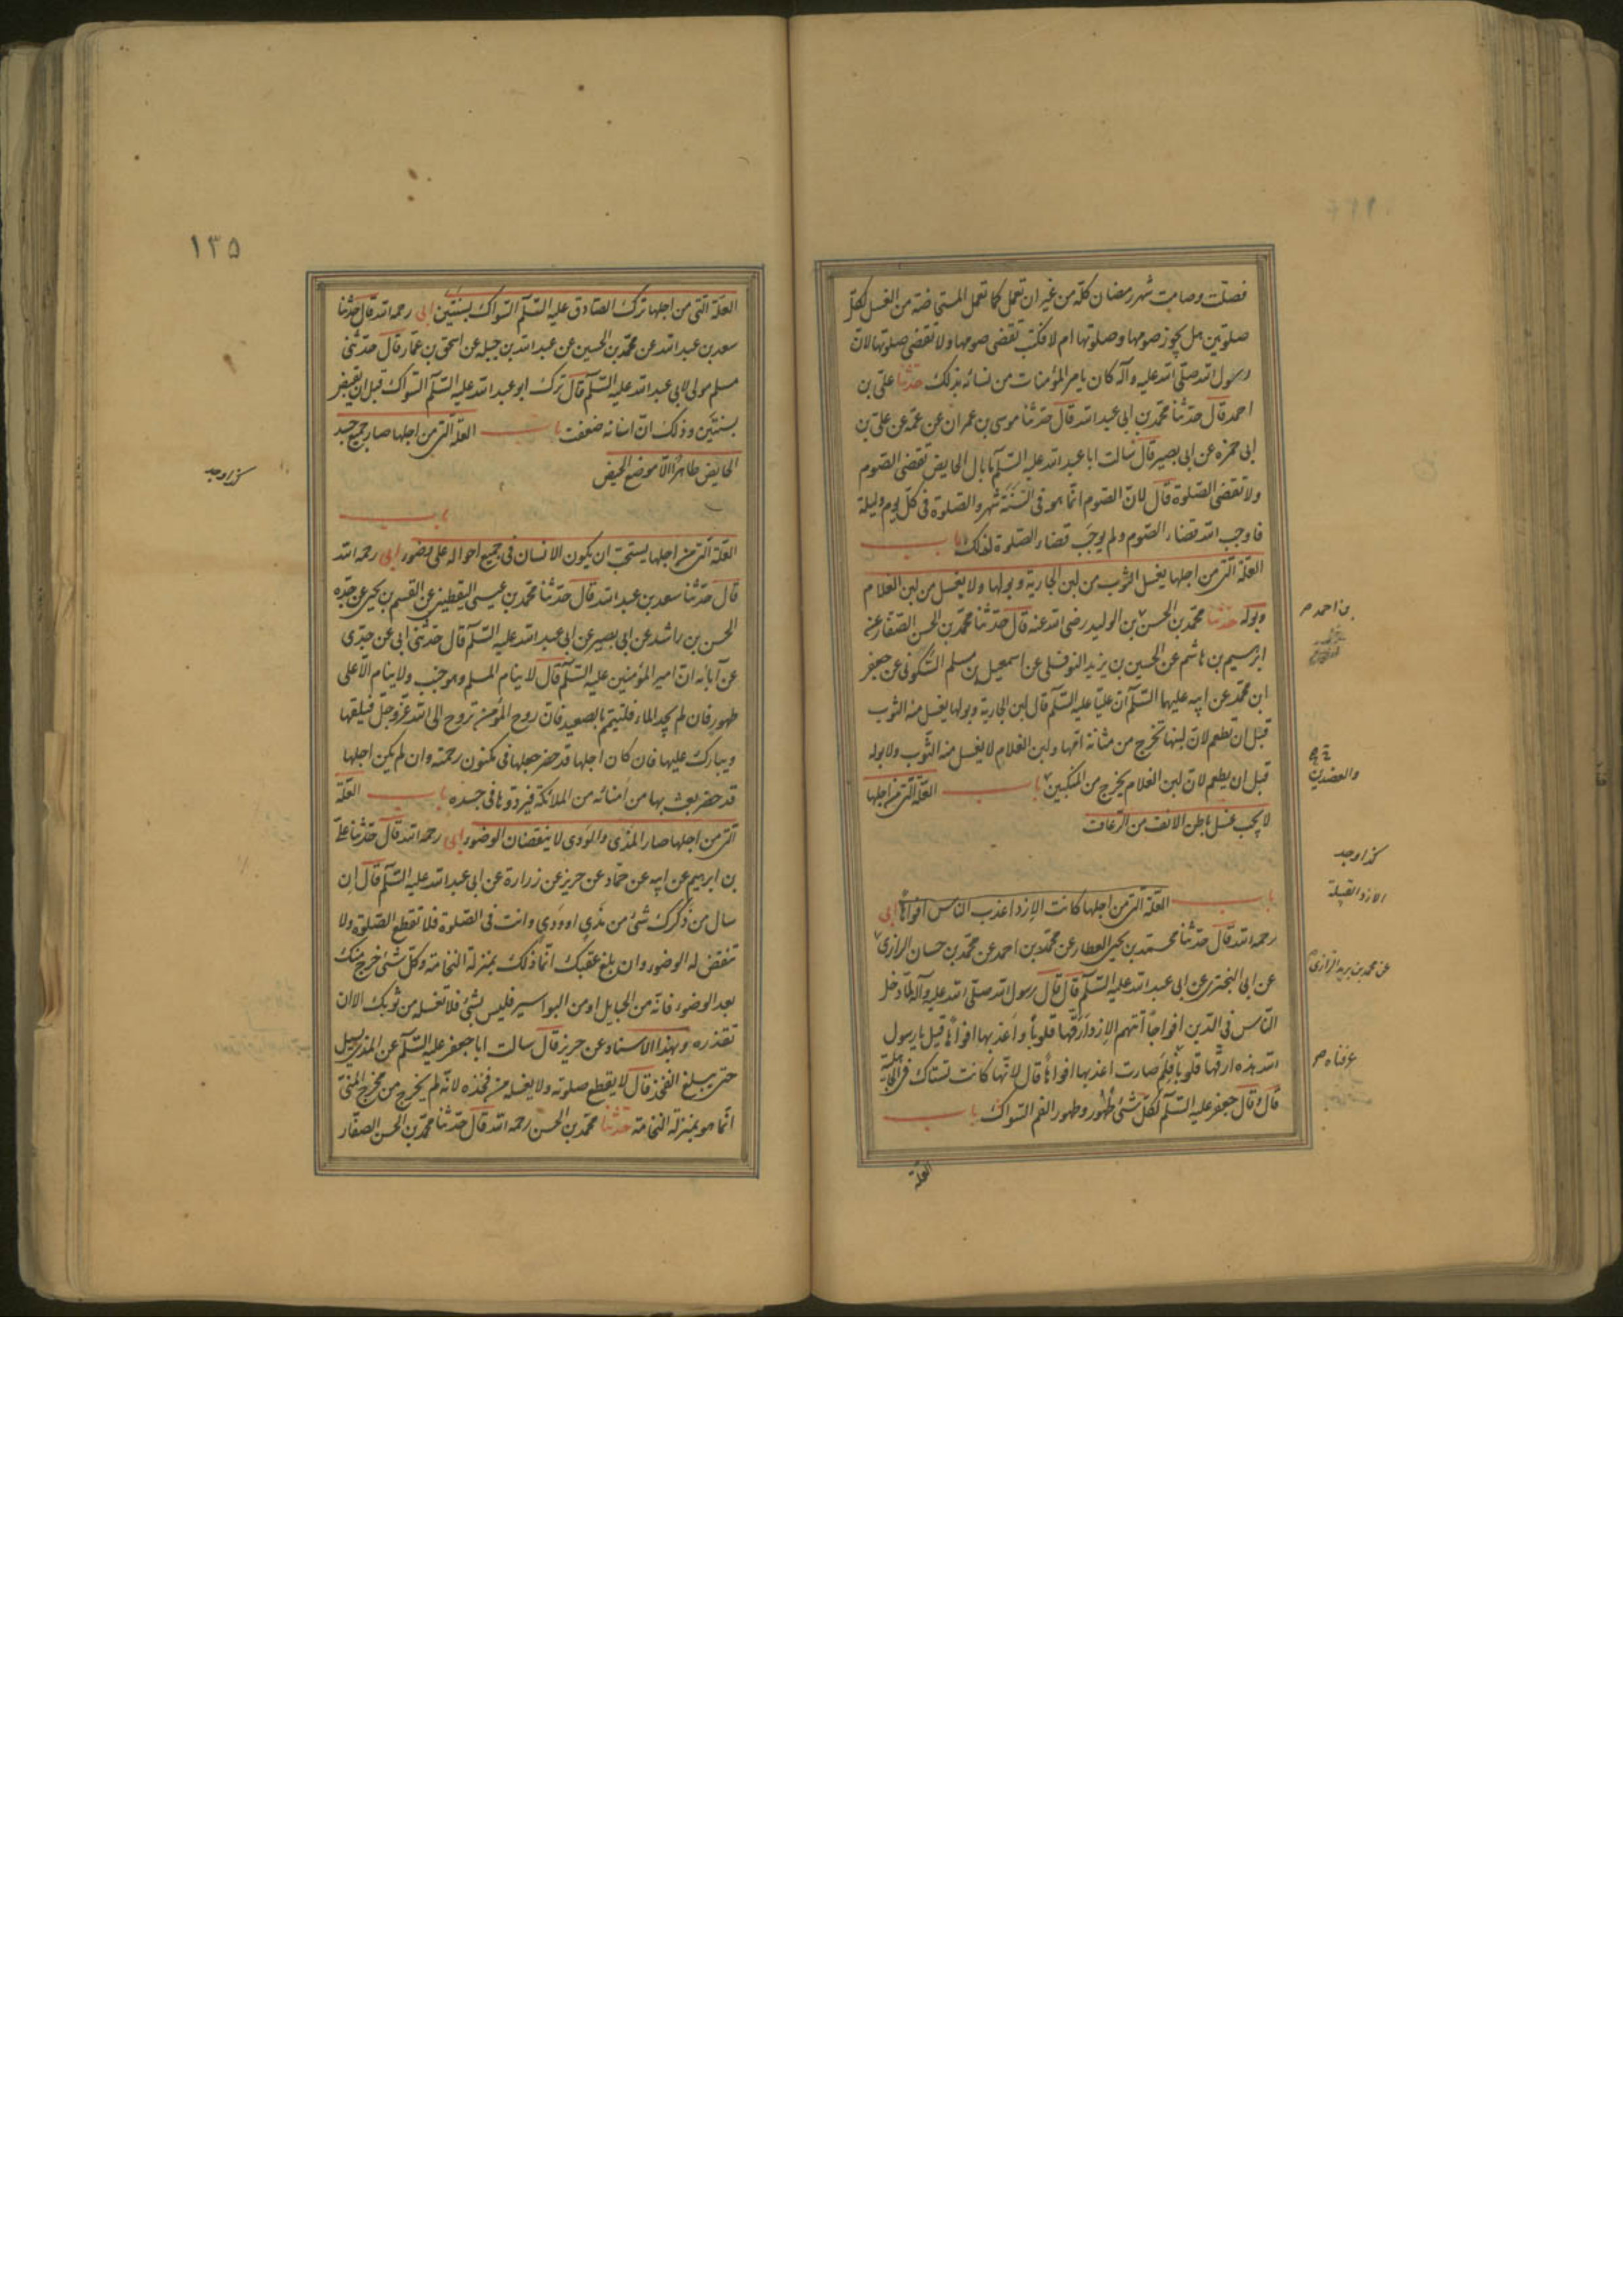 فصلت وصامت شهر رمضان كله من غير ان تعمل كما تعمل المستحاضة من الغسل لكل
صلوتين هل يجوز صومها وصلوتها ام لا فكتب تقضى صومها ولا تقضى صلوتها لان
رسول الله صلى الله عليه وآله كان يامر المؤمنات من نسائه بذلك حدثنا على بن
احمد قال حدثنا محمد بن ابى عبد الله قال حدثنا موسى بن عمران عن عمه عن على بن
ابى حمزه عن ابى بصير قال سالت ابا عبد الله عليه السلم ما بال الحايض تقضى الصوم
ولا تقضى الصلوة قال لان الصوم انما هو فى السنة شهر والصلوة فى كل يوم وليلة
فاوجب الله قضاء الصوم ولم يوجب قضاء الصلوة لذلك باب
العلة التى من اجلها يغسل الثوب من لبن الجارية وبولها ولا يغسل من لبن الغلام
وبوله حدثنا محمد بن الحسن بن الوليد رضى الله عنه قال حدثنا محمد بن الحسن الصفار عن
بن احمد ص
ابرهيم بن هاشم عن الحسين بن يزيد النوفلى عن اسمعيل بن مسلم السكونى عن جعفر
ابن محمد عن ابيه عليهما السلم ان عليا عليه السلم قال لبن الجارية وبولها يغسل منه الثوب
قبل ان تطعم لان لبنها تخرج من مثانة امها ولبن الغلام لا يغسل منه الثوب ولا بوله
قبل ان يطعم لان لبن الغلام يخرج من المنكبين باب العلة التى من اجلها
والعضدين
لا يجب غسل باطن الانف من الرعاف
كذا وجد
باب العلة التى من اجلها كانت الازد اعذب الناس افواها ابى
الازد القبيلة
رحمه الله قال حدثنا محمد بن يحيى العطار عن محمد بن احمد عن محمد بن حسان الرازى
عن محمد بن يزيد الرازى
عن ابى البخترى عن ابى عبد الله عليه السلم قال قال رسول الله صلى الله عليه وآله لما دخل
الناس فى الدين افواجا اتتهم الازد ارقها قلوبا واعذبها افواها قيل يا رسول
الله هذه ارقها قلوبا فلم صارت اعذبها افواها قال لانها كانت تستاك فى الجاهلية
عرفناه ص
قال وقال جعفر عليه السلم لكل شئ طهور وطهور الفم السواك باب
العلة
١٣٥
العلة التى من اجلها ترك الصادق عليه السلم السواك بسنتين ابى رحمه الله قال حدثنا
سعد بن عبد الله عن محمد بن الحسين عن عبد الله بن جبله عن اسحق بن عمار قال حدثنى
مسلم مولى لابى عبد الله عليه السلم قال ترك ابو عبد الله عليه السلم السواك قبل ان يقبض
بسنتين وذلك ان اسنانه ضعفت باب العلة التى من اجلها صار جميع جسد
الحايض طاهرا الا موضع الحيض
كذا وجد
باب
العلة التى من اجلها يستحب ان يكون الانسان فى جميع احواله على وضوء ابى رحمه الله
قال حدثنا سعد بن عبد الله قال حدثنا محمد بن عيسى اليقطينى عن القسم بن يحيى عن جده
الحسن بن راشد عن ابى بصير عن ابى عبد الله عليه السلم قال حدثنى ابى عن جدى
عن آبائه ان امير المؤمنين عليه السلم قال لا ينام المسلم وهو جنب ولا ينام الا على
طهور فان لم يجد الماء فليتيمم بالصعيد فان روح المؤمن تروح الى الله عز وجل فيلقها
ويبارك عليها فان كان اجلها قد حضر جعلها فى مكنون رحمته وان لم يكن اجلها
قد حضر بعث بها من امنائه من الملائكة فيردوها فى جسده باب العلة
التى من اجلها صار المذى والودى لا ينقضان الوضوء ابى رحمه الله قال حدثنا على
بن ابرهيم عن ابيه عن حماد عن حريز عن زرارة عن ابى عبد الله عليه السلم قال ان
سال من ذكرك شئ من مذى او ودى وانت فى الصلوة فلا تقطع الصلوة ولا
تنقض له الوضوء وان بلغ عقبك انما ذلك بمنزلة النخامة وكل شئ خرج منك
بعد الوضوء فانه من الحبايل او من البواسير فليس بشئ فلا تغسله من ثوبك الا ان
تقذره وبهذا الاسناد عن حريز قال سالت ابا جعفر عليه السلم عن المذى يسيل
حتى يبلغ الفخذ قال لا يقطع صلوته ولا يغسله من فخذه لانه لم يخرج من مخرج المنى
انما هو بمنزلة النخامة حدثنا محمد بن الحسن رحمه الله قال حدثنا محمد بن الحسن الصفار